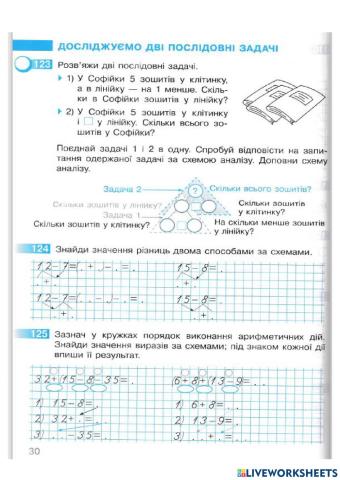 ДОСЛІДЖУЄМО ДВІ ПОСЛІДОВНІ ЗАДАЧІ
123 Розв'яжи дві послідовні задачі.
1) У Софійки 5 зошитів у клітинку,
а в лінійку — на 1 менше. Скіль-
ки в Софійки зошитів у лінійку?
2) У Софійки 5 зошитів у клітинку
і □ у лінійку. Скільки всього зо-
шитів у Софійки?
Поєднай задачі 1 і 2 в одну. Спробуй відповісти на запи-
тання одержаної задачі за схемою аналізу. Доповни схему
аналізу.
Задача 2 ? Скільки всього зошитів?
Скільки зошитів у лінійку? Скільки зошитів
у клітинку?
Задача 1
Скільки зошитів у клітинку? На скільки менше зошитів
у лінійку?
124 Знайди значення різниць двома способами за схемами.
12-7=(.+.)-.=. 15-8=.
.+.
12-7=(.+..)-.=. 15-8=.
.+.
125 Зазнач у кружках порядок виконання арифметичних дій.
Знайди значення виразів за схемами; під знаком кожної дії
впиши її результат.
32+(15-8)-35=. (6+8)+(13-9)=..
1) 15-8= 1) 6+8=..
2) 32+.= 2) 13-9=.
3) ..-35=. 3) ..+.=..
30
LIVEWORKSHEETS